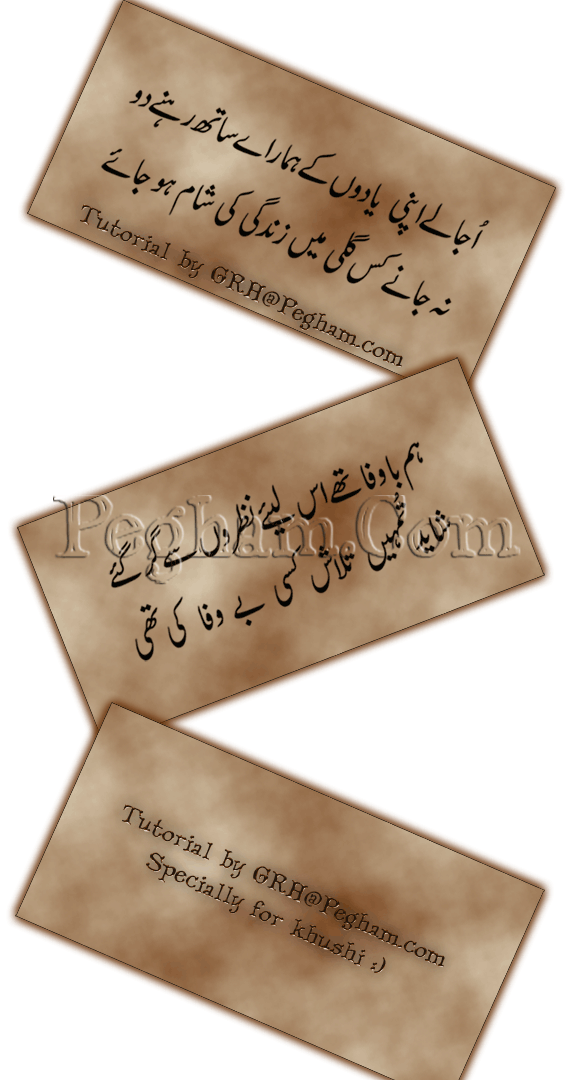 اُجالے اپنی یادوں کے ہمارے ساتھ رہنے دو
نہ جانے کس گلی میں زندگی کی شام ہو جائے
Tutorial by GRH@Pegham.com
ہم باوفا تھے اس لیئے نظروں سے گر گئے
شاید تُمہیں تلاش کسی بے وفا کی تھی
Pegham.Com
Tutorial by GRH@Pegham.com
Specially for khushi :)